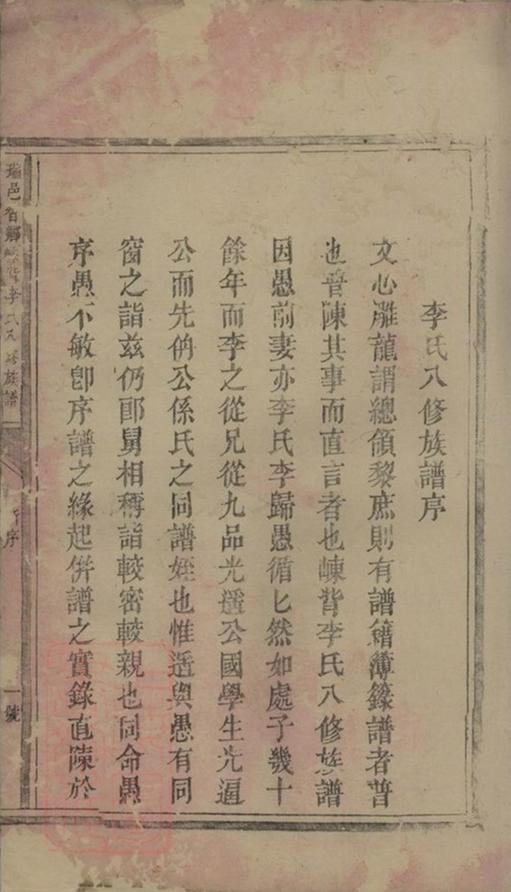 李氏八修族譜序
文心雕龍謂總領黎庶則有譜籍簿錄譜者普
也普陳其事而直言者也崠背李氏八修族譜
因愚前妻亦李氏李歸愚循匕然如處子幾十
餘年而李之從兄從九品光遥公國學生光逼
公而先侽公係氏之同譜姪也惟遥與愚有同
窗之誼茲仍郎舅相稱誼較密較親也同命愚
序愚不敏卽序譜之緣起併譜之實錄直陳於
瑞邑 背李氏八修族譜
序
一號